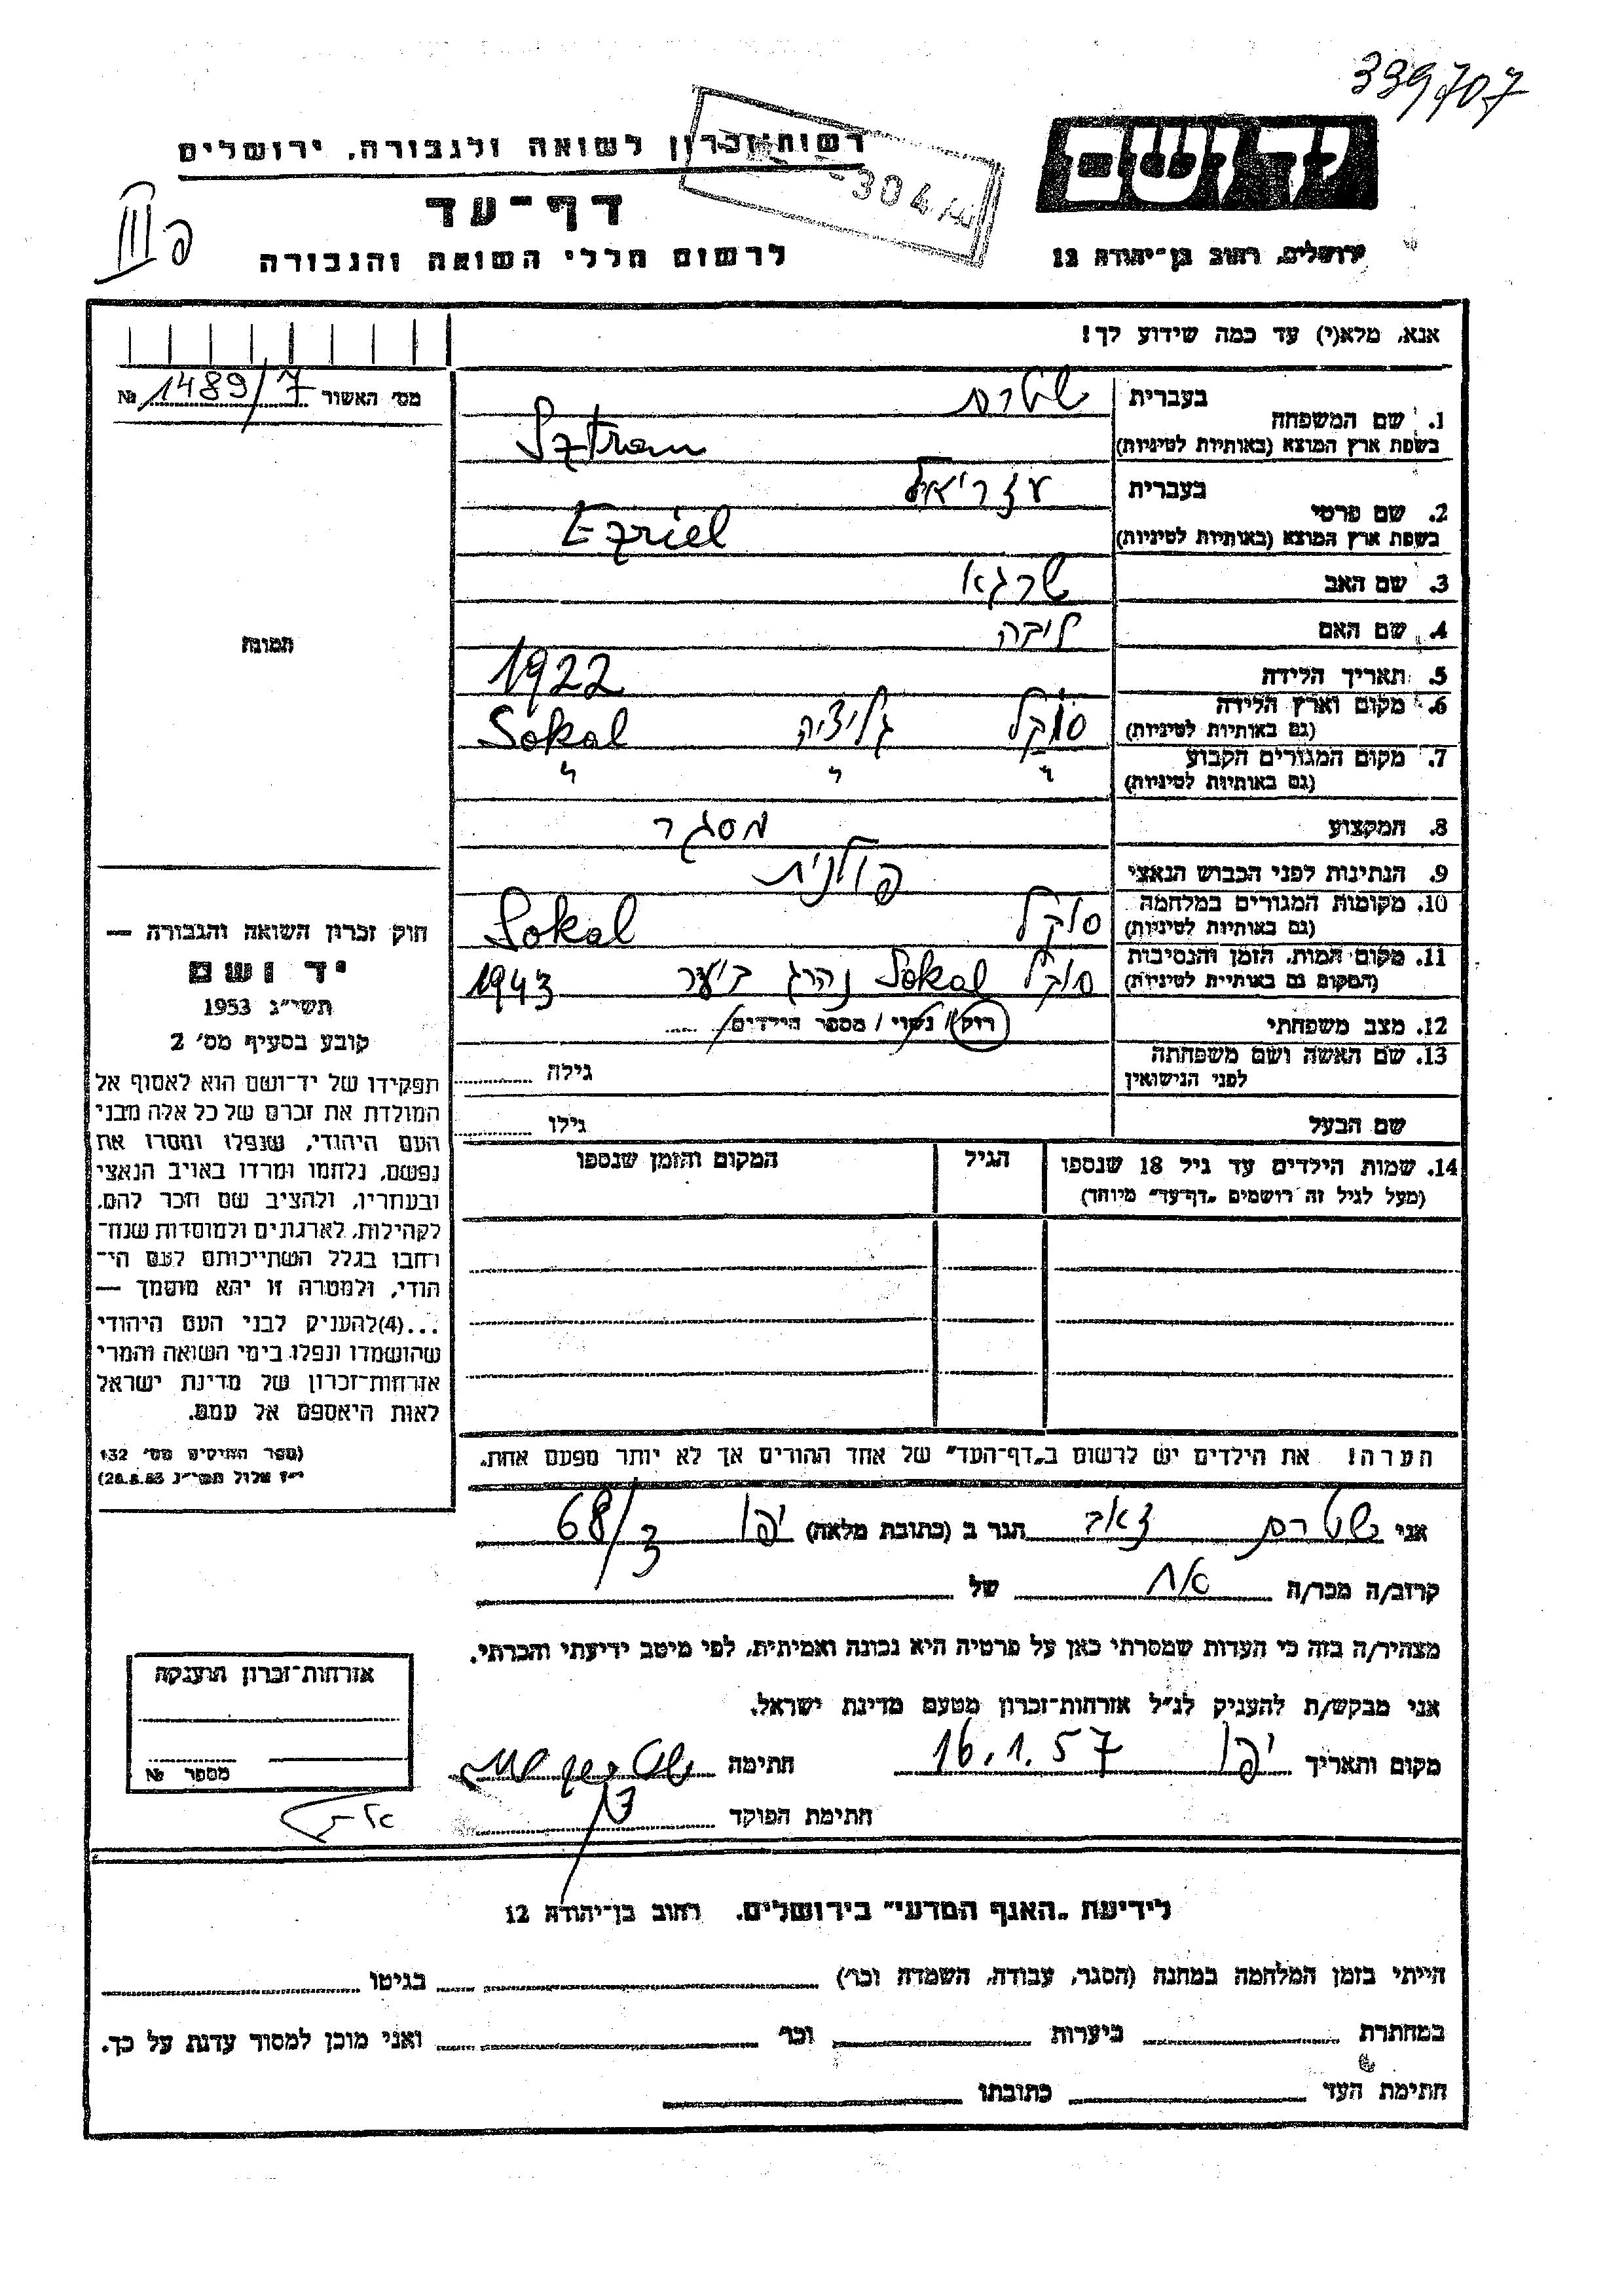 339707
רשות זכרון לשואה ולגבורה, ירושלים
דף-עד
לרשום חללי השואה והגבורה
פ III
-30 4
יד ושם
ירושלים, רחוב בן-יהודה 12
אנא, מלא(י) עד כמה שידוע לך!
מס׳ האשור 1489/7 №
תמונה
1. שם המשפחה
בעברית שטרם
בשפת ארץ המוצא (באותיות לטיניות) Sztram
2. שם פרטי
בעברית עזריאל
בשפת ארץ המוצא (באותיות לטיניות) Ezriel
3. שם האב שרגא
4. שם האם ליבה
5. תאריך הלידה 1922
6. מקום וארץ הלידה סוקל גליציה Sokal
(גם באותיות לטיניות)
7. מקום המגורים הקבוע " " "
(גם באותיות לטיניות)
8. המקצוע מסגר
9. הנתינות לפני הכבוש הנאצי פולנית
10. מקומות המגורים במלחמה סוקל Sokal
(גם באותיות לטיניות)
11. מקום המות, הזמן והנסיבות סוקל Sokal נהרג ביער 1943
(המקום גם באותיות לטיניות)
12. מצב משפחתי רוק / נשוי / מספר הילדים
13. שם האשה ושם משפחתה גילה
לפני הנישואין
שם הבעל גילו
14. שמות הילדים עד גיל 18 שנספו הגיל המקום והזמן שנספו
(מעל לגיל זה רושמים „דף-עד" מיוחד)
הערה! את הילדים יש לרשום ב„דף-העד" של אחד ההורים אך לא יותר מפעם אחת.
חוק זכרון השואה והגבורה —
יד ושם
תשי״ג 1953
קובע בסעיף מס׳ 2
תפקידו של יד-ושם הוא לאסוף אל
המולדת את זכרם של כל אלה מבני
העם היהודי, שנפלו ומסרו את
נפשם, נלחמו ומרדו באויב הנאצי
ובעוזריו, ולהציב שם וזכר להם,
לקהילות, לארגונים ולמוסדות שנח-
רבו בגלל השתייכותם לעם הי-
הודי, ולמטרה זו יהא מוסמך —
...(4)להעניק לבני העם היהודי
שהושמדו ונפלו בימי השואה והמרי
אזרחות-זכרון של מדינת ישראל
לאות היאספם אל עמם.
(ספר החוקים מס׳ 132
י״ז אלול תשי״ג 28.8.53)
אני שטרם זאב הגר ב (כתובת מלאה) יפו 68/3
קרוב/ה מכר/ה אח של
מצהיר/ה בזה כי העדות שמסרתי כאן על פרטיה היא נכונה ואמיתית, לפי מיטב ידיעתי והכרתי.
אני מבקש/ת להעניק לנ״ל אזרחות-זכרון מטעם מדינת ישראל.
מקום ותאריך יפו 16.1.57 חתימה
חתימת הפוקד
אזרחות-זכרון הוענקה
מספר №
לידיעת „האגף המדעי" בירושלים, רחוב בן-יהודה 12
הייתי בזמן המלחמה במחנה (הסגר, עבודה, השמדה וכו׳) בגיטו
במחתרת ביערות וכו׳ ואני מוכן למסור עדות על כך.
חתימת העד כתובתו